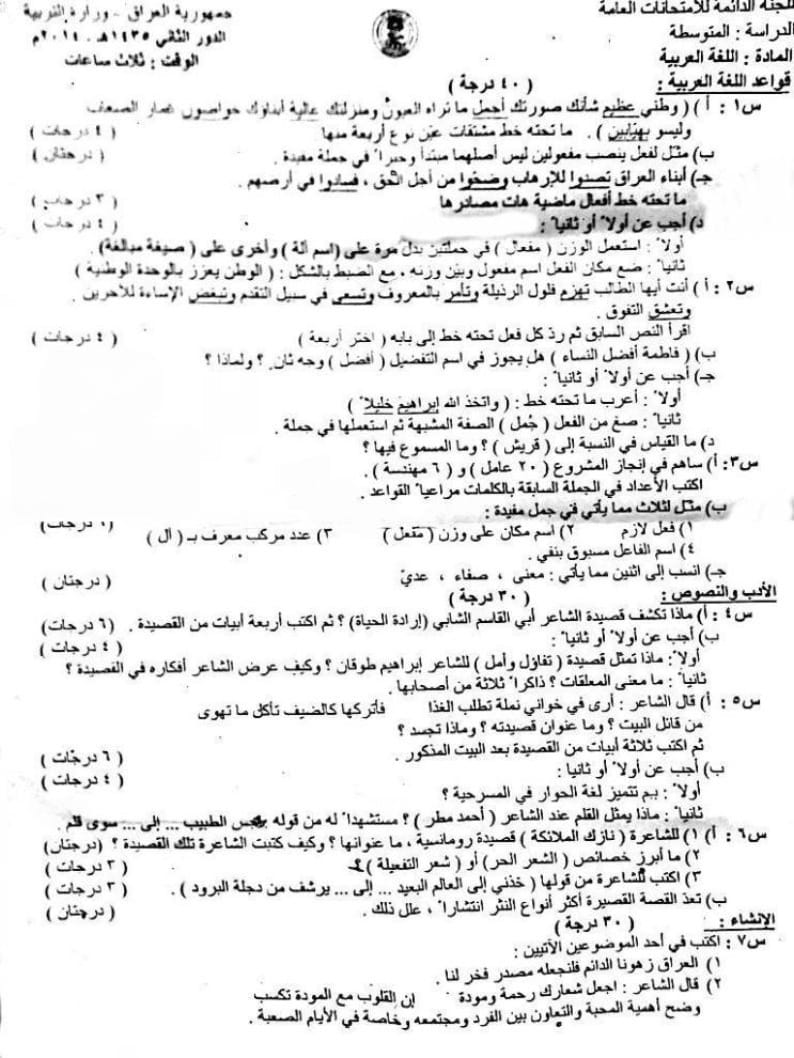 اللجنة الدائمة للامتحانات العامة
جمهورية العراق - وزارة التربية
الدراسة : المتوسطة
الدور الثاني ١٤٣٥هـ - ٢٠١٤م
المادة : اللغة العربية
الوقت : ثلاث ساعات
قواعد اللغة العربية : ( ٤٠ درجة )
س١ : أ ) ( وطني عظيم شأنك صورتك أجمل ما تراه العيون ومنزلتك عالية أبناؤك حواصون غمار الصعاب
وليسو بهيابين ) . ما تحته خط مشتقات عيّن نوع أربعة منها ( ٤ درجات )
ب) مثل لفعل ينصب مفعولين ليس أصلهما مبتدأ وخبراً في جملة مفيدة . ( درجتان )
جـ) أبناء العراق تصدوا للإرهاب وضحوا من أجل الحق ، فسادوا في أرضهم .
ما تحته خط أفعال ماضية هات مصادرها ( ٣ درجات )
د) أجب عن أولاً أو ثانياً : ( ٤ درجات )
أولاً : استعمل الوزن ( مفعال ) في جملتين يدل مرة على (اسم آلة ) وأخرى على ( صيغة مبالغة).
ثانياً : ضع مكان الفعل اسم مفعول وبيّن وزنه ، مع الضبط بالشكل : ( الوطن يعزز بالوحدة الوطنية )
س٢ : أ ) أنت أيها الطالب تهزم فلول الرذيلة وتأمر بالمعروف وتسعى في سبيل التقدم وتبغض الإساءة للآخرين
وتعشق التفوق .
اقرأ النص السابق ثم رد كل فعل تحته خط إلى بابه ( اختر أربعة ) ( ٤ درجات )
ب) ( فاطمة أفضل النساء ) هل يجوز في اسم التفضيل ( أفضل ) وجه ثان ؟ ولماذا ؟
جـ) أجب عن أولاً أو ثانياً :
أولاً : أعرب ما تحته خط : ( واتخذ الله إبراهيم خليلاً )
ثانياً : صغ من الفعل ( جُمل ) الصفة المشبهة ثم استعملها في جملة .
د) ما القياس في النسبة إلى ( قريش ) ؟ وما المسموع فيها ؟
س٣: أ) ساهم في إنجاز المشروع ( ٢٠ عامل ) و ( ٦ مهندسة ) .
اكتب الأعداد في الجملة السابقة بالكلمات مراعياً القواعد .
ب) مثل لثلاث مما يأتي في جمل مفيدة : درجات)
١) فعل لازم ٢) اسم مكان على وزن ( مفعل ) ٣) عدد مركب معرف بـ ( أل )
٤) اسم الفاعل مسبوق بنفي .
جـ) انسب إلى اثنين مما يأتي : معنى ، صفاء ، عديّ ( درجتان )
الأدب والنصوص : ( ٣٠ درجة )
س٤ : أ) ماذا تكشف قصيدة الشاعر أبي القاسم الشابي (إرادة الحياة) ؟ ثم اكتب أربعة أبيات من القصيدة . ( ٦ درجات)
ب) أجب عن أولاً أو ثانياً : ( ٤ درجات )
أولاً : ماذا تمثل قصيدة ( تفاؤل وأمل ) للشاعر إبراهيم طوقان ؟ وكيف عرض الشاعر أفكاره في القصيدة ؟
ثانياً : ما معنى المعلقات ؟ ذاكراً ثلاثة من أصحابها .
س٥ : أ) قال الشاعر : أرى في خواني نملة تطلب الغذا فأتركها كالضيف تأكل ما تهوى
من قائل البيت ؟ وما عنوان قصيدته ؟ وماذا تجسد ؟
ثم اكتب ثلاثة أبيات من القصيدة بعد البيت المذكور . ( ٦ درجات )
ب) أجب عن أولاً أو ثانيا : ( ٤ درجات )
أولاً : بم تتميز لغة الحوار في المسرحية ؟
ثانياً : ماذا يمثل القلم عند الشاعر ( أحمد مطر ) ؟ مستشهداً له من قوله جس الطبيب ... إلى ... سوى قلم .
س٦ : أ) ١) للشاعرة ( نازك الملائكة ) قصيدة رومانسية ، ما عنوانها ؟ وكيف كتبت الشاعرة تلك القصيدة ؟ (درجتان)
٢) ما أبرز خصائص ( الشعر الحر) أو ( شعر التفعيلة ) ؟ ( ٣ درجات )
٣) اكتب للشاعرة من قولها ( خذني إلى العالم البعيد ... إلى ... يرشف من دجلة البرود ) . ( ٣ درجات )
ب) تعدّ القصة القصيرة أكثر أنواع النثر انتشاراً ، علل ذلك . ( درجتان )
الإنشاء : ( ٣٠ درجة )
س٧ : اكتب في أحد الموضوعين الآتيين :
١) العراق زهونا الدائم فلنجعله مصدر فخر لنا .
٢) قال الشاعر : اجعل شعارك رحمة ومودة إن القلوب مع المودة تكسب
وضح أهمية المحبة والتعاون بين الفرد ومجتمعه وخاصة في الأيام الصعبة .